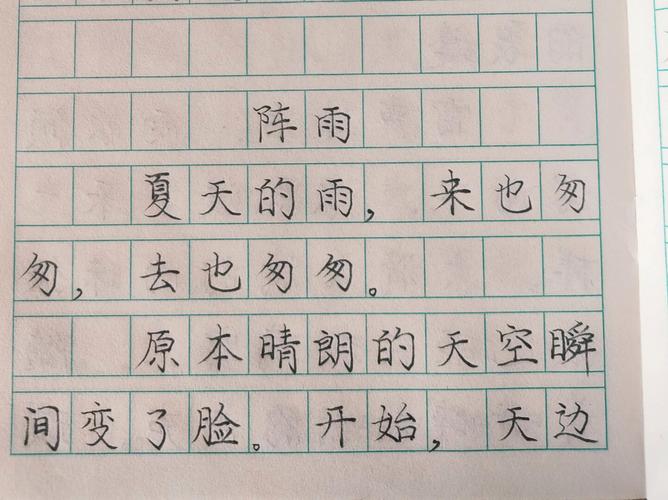 阵雨
夏天的雨，来也匆
匆，去也匆匆。
原本晴朗的天空瞬
间变了脸。开始，天边